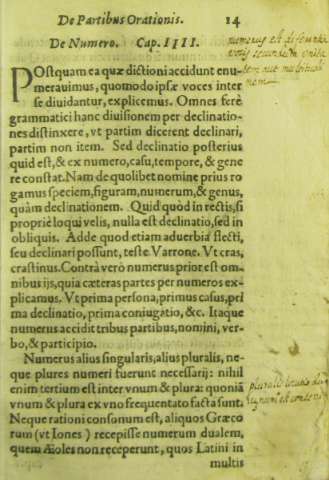 De Partibus Orationis. 14
De Numero. Cap. IIII.
POstquam ea quæ dictioni accidunt enu-
merauimus, quomodo ipsæ voces inter
se diuidantur, explicemus. Omnes ferè
grammatici hanc diuisionem per declinatio-
nes distinxere, vt partim dicerent declinari,
partim non item. Sed declinatio posterius
quid est, & ex numero, casu, tempore, & gene
re constat. Nam de quolibet nomine prius ro
gamus speciem, figuram, numerum, & genus,
quàm declinationem. Quid quòd in rectis, si
propriè loqui velis, nulla est declinatio, sed in
obliquis. Adde quod etiam aduerbia flecti,
seu declinari possunt, teste Varrone. Vt cras,
crastinus. Contrà verò numerus prior est om-
nibus ijs, quia cæteras partes per numeros ex-
plicamus. Vt prima persona, primus casus, pri
ma declinatio, prima coniugatio, &c. Itaque
numerus accidit tribus partibus, nomini, ver-
bo, & participio.
Numerus alius singularis, alius pluralis, ne-
que plures numeri fuerunt necessarij: nihil
enim tertium est inter vnum & plura: quoniã
vnum & plura ex vno frequentato facta sunt.
Neque rationi consonum est, aliquos Græco
rum (vt Iones) recepisse numerum dualem,
quem Æoles non receperunt, quos Latini in
multis
numerus est